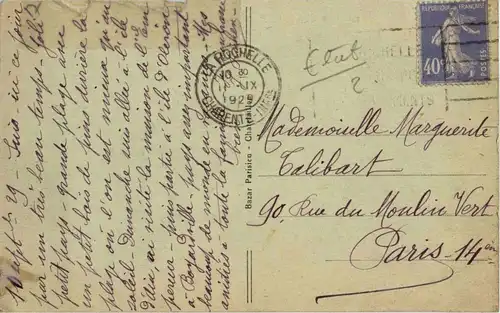 10 Sept 29 - Suis ici ce jour
par un très beau temps - Joli
petit pays - grande plage avec
un petit bois de pins derrière la
plage où l'on est mieux qu'au
soleil - Dimanche suis allée à l'île
d'Aix, ai visité la maison de l'Em
pereur - puis partie à l'île d'Oleron
à Boyardville - pays peu important
beaucoup de monde
amitiés à toute la famille
Bazar Parisien - Chatelaillon
LA ROCHELLE
IX
1929
CHARENTE-INFRE
REPUBLIQUE FRANÇAISE
40c
POSTES
2
Mademoiselle Marguerite
Talibart
90, Rue du Moulin Vert
Paris - 14em